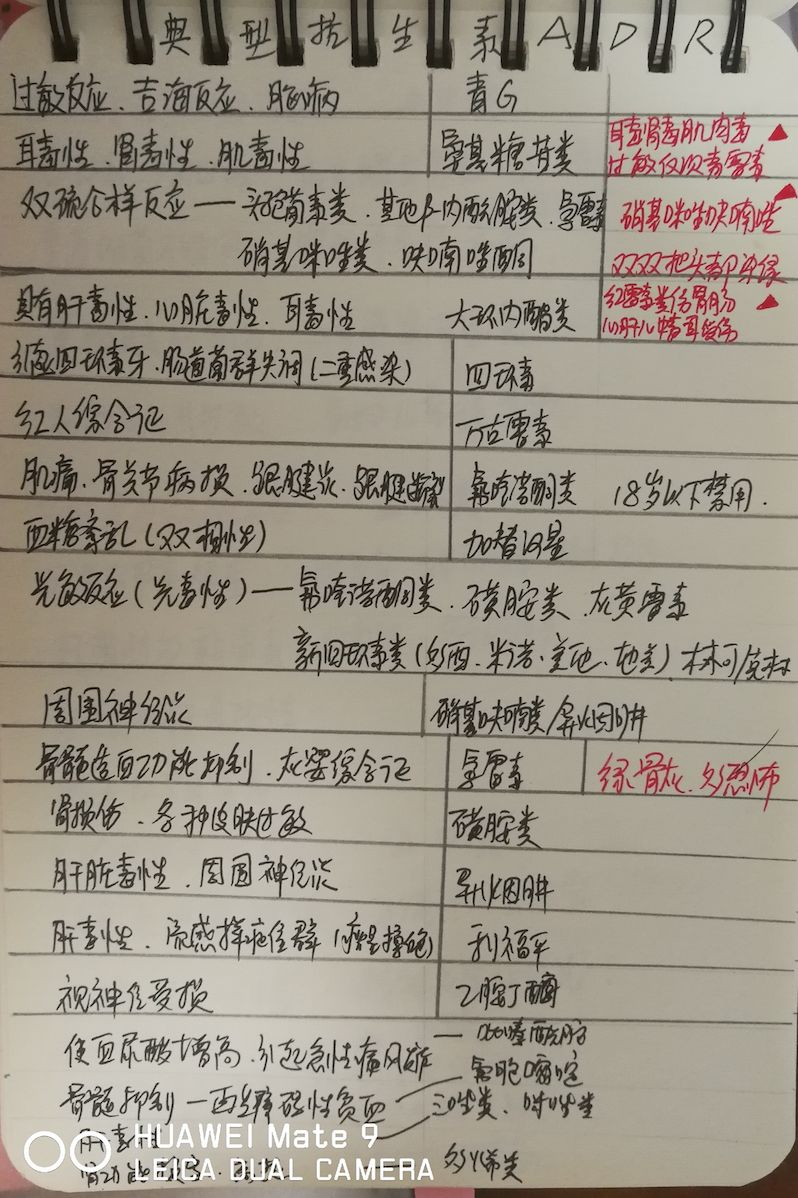 典型抗生素ADR
过敏反应、吉海反应、脑病 青G
耳毒性、肾毒性、肌毒性 氨基糖苷类 耳毒肾毒肌肉毒
过敏仅次青霉素
双硫仑样反应——头孢菌素类、其他β-内酰胺类、氯霉素 硝基咪唑呋喃唑
硝基咪唑类、呋喃唑酮 双双把头都
具有肝毒性、心脏毒性、耳毒性 大环内酯类 红霉素类伤胃肠
心肝
引起四环素牙、肠道菌群失调(二重感染) 四环素
红人综合征 万古霉素
肌痛、骨关节病损、跟腱炎、跟腱断裂 氟喹诺酮类 18岁以下禁用.
血糖紊乱(双相性) 加替沙星
光敏反应(光毒性)——氟喹诺酮类、磺胺类、灰黄霉素
新四环素类(多西、米诺、美他、地美)林可/克林
周围神经炎 硝基呋喃类/异烟肼
骨髓造血功能抑制、灰婴综合征 氯霉素 绿骨灰、多恐怖
肾损伤、各种皮肤过敏 磺胺类
肝脏毒性、周围神经炎 异烟肼
肝毒性、流感样症候群 利福平
视神经受损 乙胺丁醇
使血尿酸增高、引起急性痛风症 — 吡嗪酰胺
骨髓抑制—再生障碍性贫血 氟胞嘧啶
肝毒性 三唑类、咪唑类
多烯类
HUAWEI Mate 9
LEICA DUAL CAMERA